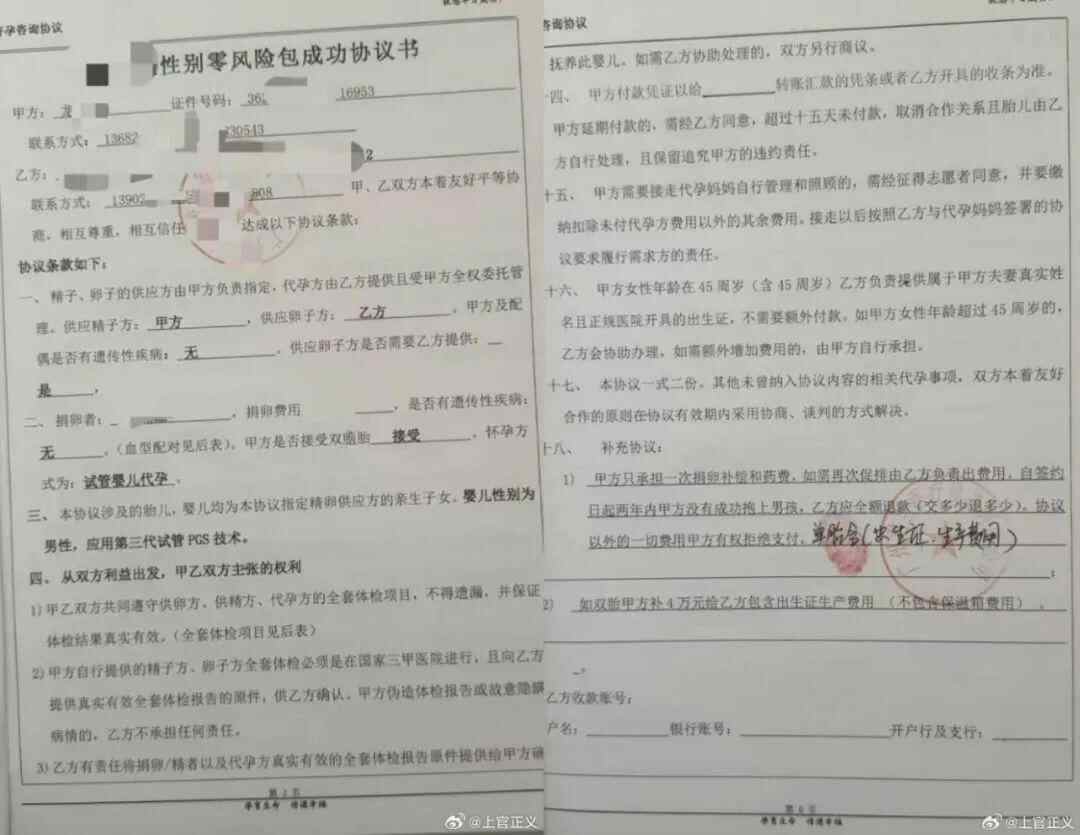 孕咨询协议
性别零风险包成功协议书
甲方：龙 证件号码：362 16953
联系方式：13682 230543
乙方： 2
联系方式：13902 808 甲、乙双方本着友好平等协
商，相互尊重，相互信任 达成以下协议条款：
协议条款如下：
一、精子、卵子的供应方由甲方负责指定，代孕方由乙方提供且受甲方全权委托管
理。供应精子方：甲方，供应卵子方：乙方。甲方及配
偶是否有遗传性疾病：无。供应卵子方是否需要乙方提供：
是。
二、捐卵者： ，捐卵费用 ，是否有遗传性疾病：
无。（血型配对见后表）。甲方是否接受双胞胎 接受。怀孕方
式为：试管婴儿代孕。
三、本协议涉及的胎儿，婴儿均为本协议指定精卵供应方的亲生子女。婴儿性别为
男性，应用第三代试管 PGS 技术。
四、从双方利益出发，甲乙双方主张的权利
1）甲乙双方共同遵守供卵方、供精方、代孕方的全套体检项目，不得遗漏，并保证
体检结果真实有效。（全套体检项目见后表）
2）甲方自行提供的精子方、卵子方全套体检必须是在国家三甲医院进行，且向乙方
提供真实有效全套体检报告的原件，供乙方确认。甲方伪造体检报告或故意隐瞒
病情的，乙方不承担任何责任。
3）乙方有责任将捐卵/精者以及代孕方真实有效的全套体检报告原件提供给甲方确
第 1 页
孕育生命 传递幸福
@上官正义
咨询协议
抚养此婴儿。如需乙方协助处理的，双方另行商议。
十四、 甲方付款凭证以给 转账汇款的凭条或者乙方开具的收条为准。
甲方延期付款的，需经乙方同意，超过十五天未付款，取消合作关系且胎儿由乙
方自行处理，且保留追究甲方的违约责任。
十五、 甲方需要接走代孕妈妈自行管理和照顾的，需经征得志愿者同意，并要缴
纳扣除未付代孕方费用以外的其余费用。接走以后按照乙方与代孕妈妈签署的协
议要求履行需求方的责任。
十六、 甲方女性年龄在 45 周岁（含 45 周岁）乙方负责提供属于甲方夫妻真实姓
名且正规医院开具的出生证，不需要额外付款。如甲方女性年龄超过 45 周岁的，
乙方会协助办理，如需额外增加费用的，由甲方自行承担。
十七、 本协议一式二份。其他未曾纳入协议内容的相关代孕事项，双方本着友好
合作的原则在协议有效期内采用协商、谈判的方式解决。
十八、 补充协议：
1） 甲方只承担一次捐卵补偿和药费，如需再次促排由乙方负责出费用，自签约
日起两年内甲方没有成功抱上男孩，乙方应全额退款（交多少退多少）。协议
以外的一切费用甲方有权拒绝支付。单胎含（出生证、生产费用）
；
2） 如双胎甲方补 4 万元给乙方包含出生证生产费用 （不包含保温箱费用）。
。
乙方收款账号：
户名： 银行账号： 开户行及支行：
第 6 页
孕育生命 传递幸福
@上官正义